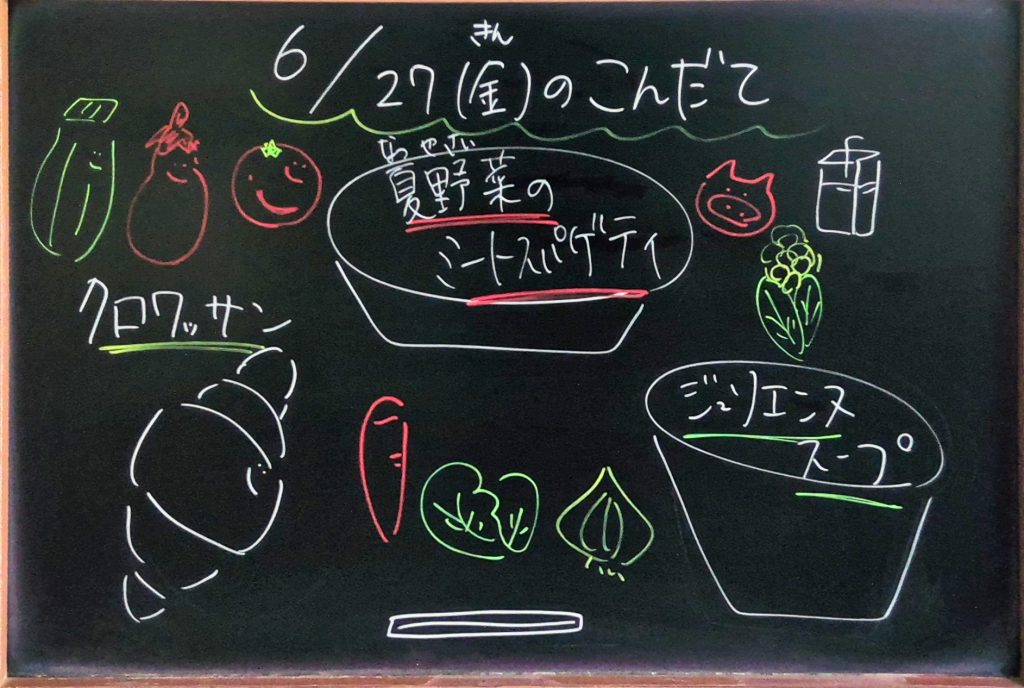 きん
6/27(金)のこんだて
なつやさい
夏野菜の
ミートスパゲティ
クロワッサン
ジュリエンヌ
スープ